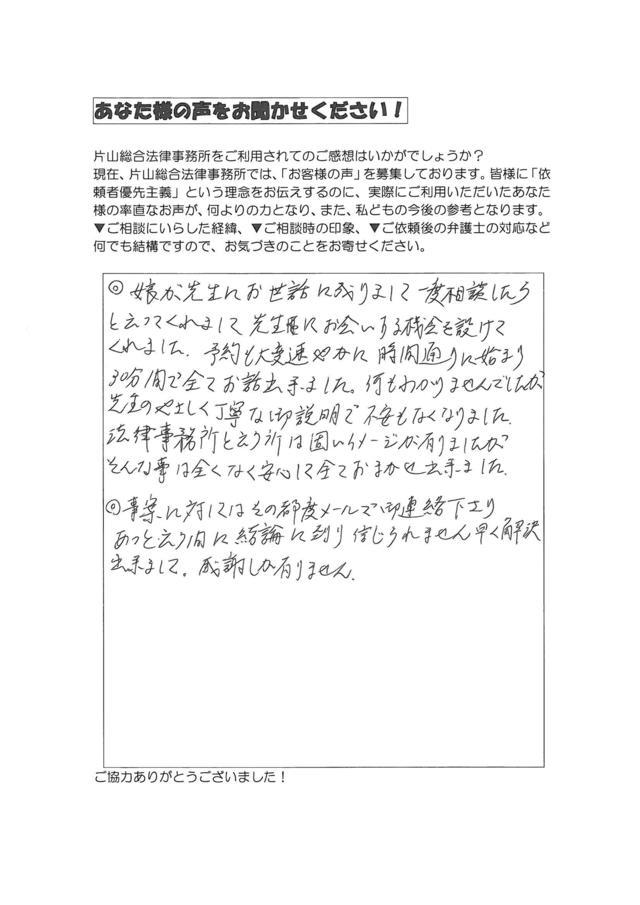 あなた様の声をお聞かせください！
片山総合法律事務所をご利用されてのご感想はいかがでしょうか？
現在、片山総合法律事務所では、「お客様の声」を募集しております。皆様に「依
頼者優先主義」という理念をお伝えするのに、実際にご利用いただいたあなた
様の率直なお声が、何よりの力となり、また、私どもの今後の参考となります。
▼ご相談にいらした経緯、▼ご相談時の印象、▼ご依頼後の弁護士の対応など
何でも結構ですので、お気づきのことをお寄せください。
◎ 娘が先生にお世話に成りまして一度相談したら
と云ってくれまして先生にお会いする機会を設けて
くれました。予約も大変速やかに時間通りに始まり
30分間で全てお話出来ました。何もわかりませんでしたが
先生のやさしく丁寧な御説明で不安もなくなりました。
法律事務所と云う所は固いイメージが有りましたが
そんな事は全くなく安心して全ておまかせ出来ました。
◎事案に対してはその都度メールで御連絡下さり
あっと云う間に結論に到り信じられません早く解決
出来まして。感謝しか有りません。
ご協力ありがとうございました！